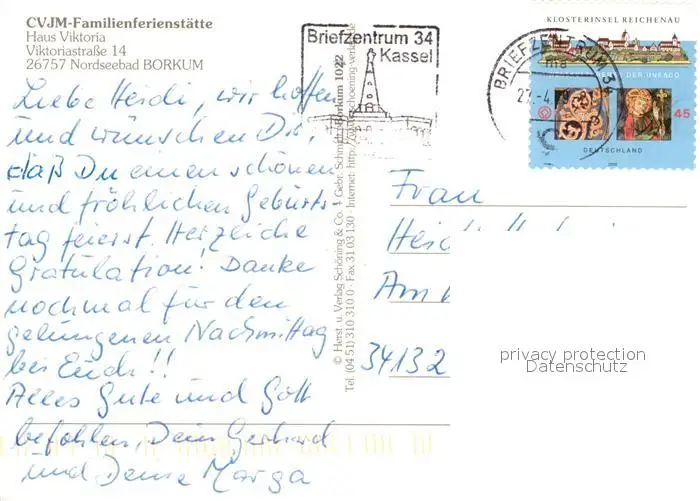 CVJM-Familienferienstätte
Haus Viktoria
Viktoriastraße 14
26757 Nordseebad BORKUM
Liebe Heidi, wir hoffen
und wünschen Dir,
daß Du einen schönen
und fröhlichen Geburts-
tag feierst. Herzliche
Gratulation! Danke
nochmal für den
gelungenen Nachmittag
bei Euch!!
Alles Gute und Gott
befohlen, Dein Gerhard
und Deine Marga
© Herst. u. Verlag Schöning & Co. + Gebr. Schmidt Borkum 1022
Tel. (04 51) 310 310 0 · Fax 31 03 130 · Internet: http://www.schoening-verlag.de
Briefzentrum 34
Kassel
BRIEFZENTRUM 34
ma
KLOSTERINSEL REICHENAU
DER UNESCO
45
DEUTSCHLAND
Frau
Heid
Am
34132
privacy protection
Datenschutz